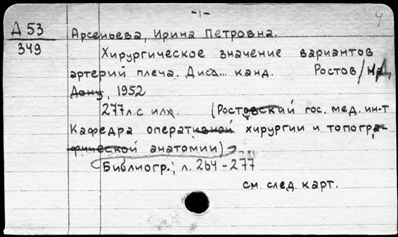 -1-
Д 53
349
Арсеньева, Ирина Петровна.
Хирургическое значение вариантов
артерий плеча. Дисс... канд. Ростов/на
Дону, 1952
277л.с илл. (Ростовский гос. мед. ин-т
Кафедра оперативной хирургии и топогра-
фической анатомии)
Библиогр.; л. 264-277
см. след. карт.